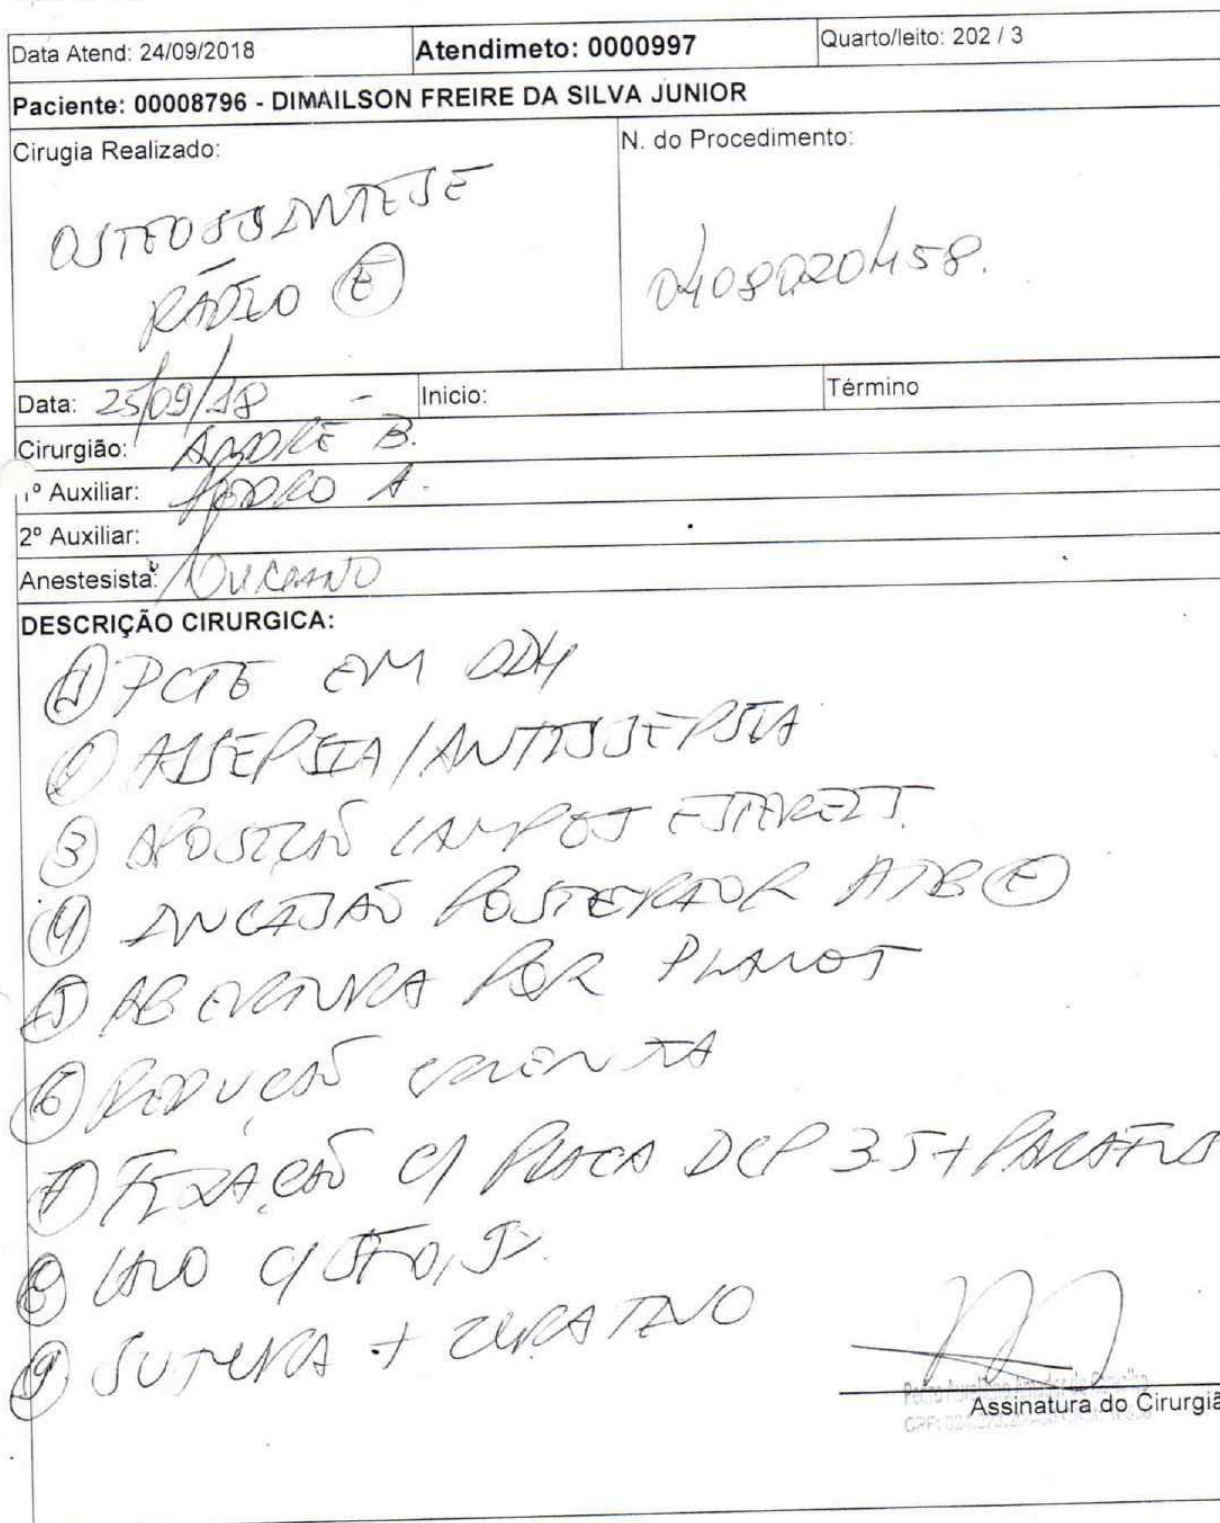 Data Atend: 24/09/2018 Atendimeto: 0000997 Quarto/leito: 202 / 3
Paciente: 00008796 - DIMAILSON FREIRE DA SILVA JUNIOR
Cirugia Realizado: N. do Procedimento:
OSTEOSSINTESE
RÁDIO (E)
0408020458.
Data: 25/09/18 - Inicio: Término
Cirurgião: ANDRÉ B.
1º Auxiliar: PEDRO A.
2º Auxiliar:
Anestesista: LUCIANO
DESCRIÇÃO CIRURGICA:
(1) PCTE EM DDH
(2) ASSEPSIA/ANTISSEPSIA
(3) APOSIÇÃO CAMPOS ESTEREIS.
(4) INCISÃO POSTERIOR ATB (E)
(5) ABERTURA POR PLANOS
(6) REDUÇÃO CRUENTA
(7) FIXAÇÃO C/ PLACA DCP 3.5 + PARAFUS
(8) LAVO C/ SF0,9%
(9) SUTURA + CURATIVO
Assinatura do Cirurgiã